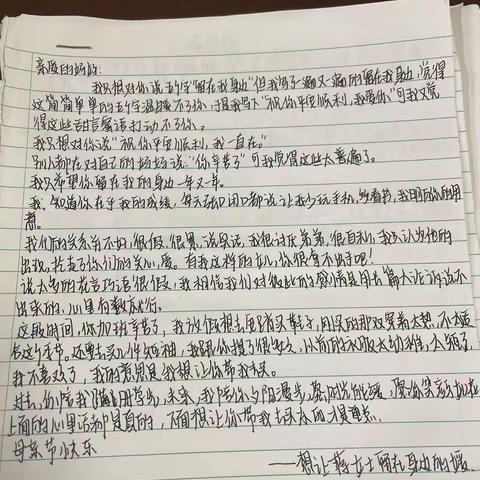 亲爱的妈妈:
我只想对你说五个字"留在我身边"但我写了一遍又一遍的留在我身边,觉得
这简简单单的五个字温暖不了你,于是我写下"祝你平安顺利,我爱你"可我又觉
得这些甜言蜜语打动不了你。
我只想对你说"祝你平安顺利,我一直在。"
别人都在对自己的妈妈说:"你辛苦了"可我觉得这些太普遍了。
我只希望你留在我的身边一年又一年。
我知道你在乎我的成绩,每天张口闭口都说让我少玩手机,多看书,我明白你的用
意。
我们的关系并不好,很假,很累,说实话,我很讨厌弟弟,很自私,我不认为他的
出现,抢走了你们的关心,爱。有我这样的女儿,你很拿不出手吧!
说太多的花言巧语很假,我相信我们对彼此的感情是用长篇大论诉说不
出来的,心里有数就行。
这段时间,你加班辛苦了,我放假想去逛街买鞋子,刚买的那双穿着太热,不太适
合这个季节。还要去买几件短袖,我跟你搜了很多次,以前的衣服太幼稚,太短了,
我不喜欢了,我的意思是我想让你带我去买。
过去,你陪我蹒跚学步,未来,我陪你夕阳漫步,愿时光能缓,愿你笑颜如花
上面的心里话都是真的,下面想让你带我去买衣服才是重点。
母亲节快乐
——想让蒋女士留在身边的媛.